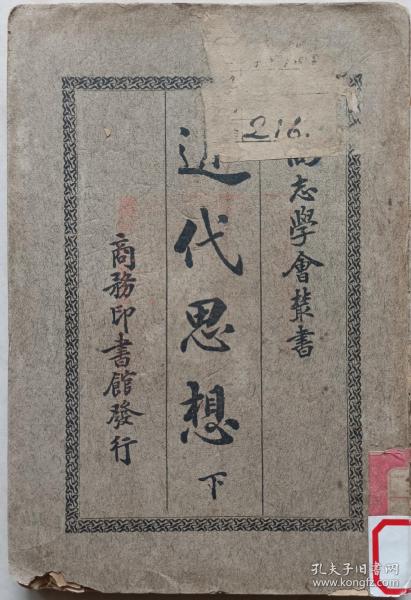 216.
尚志學會叢書
近代思想
下
商務印書館發行
孔夫子旧书网
www.kongfz.com